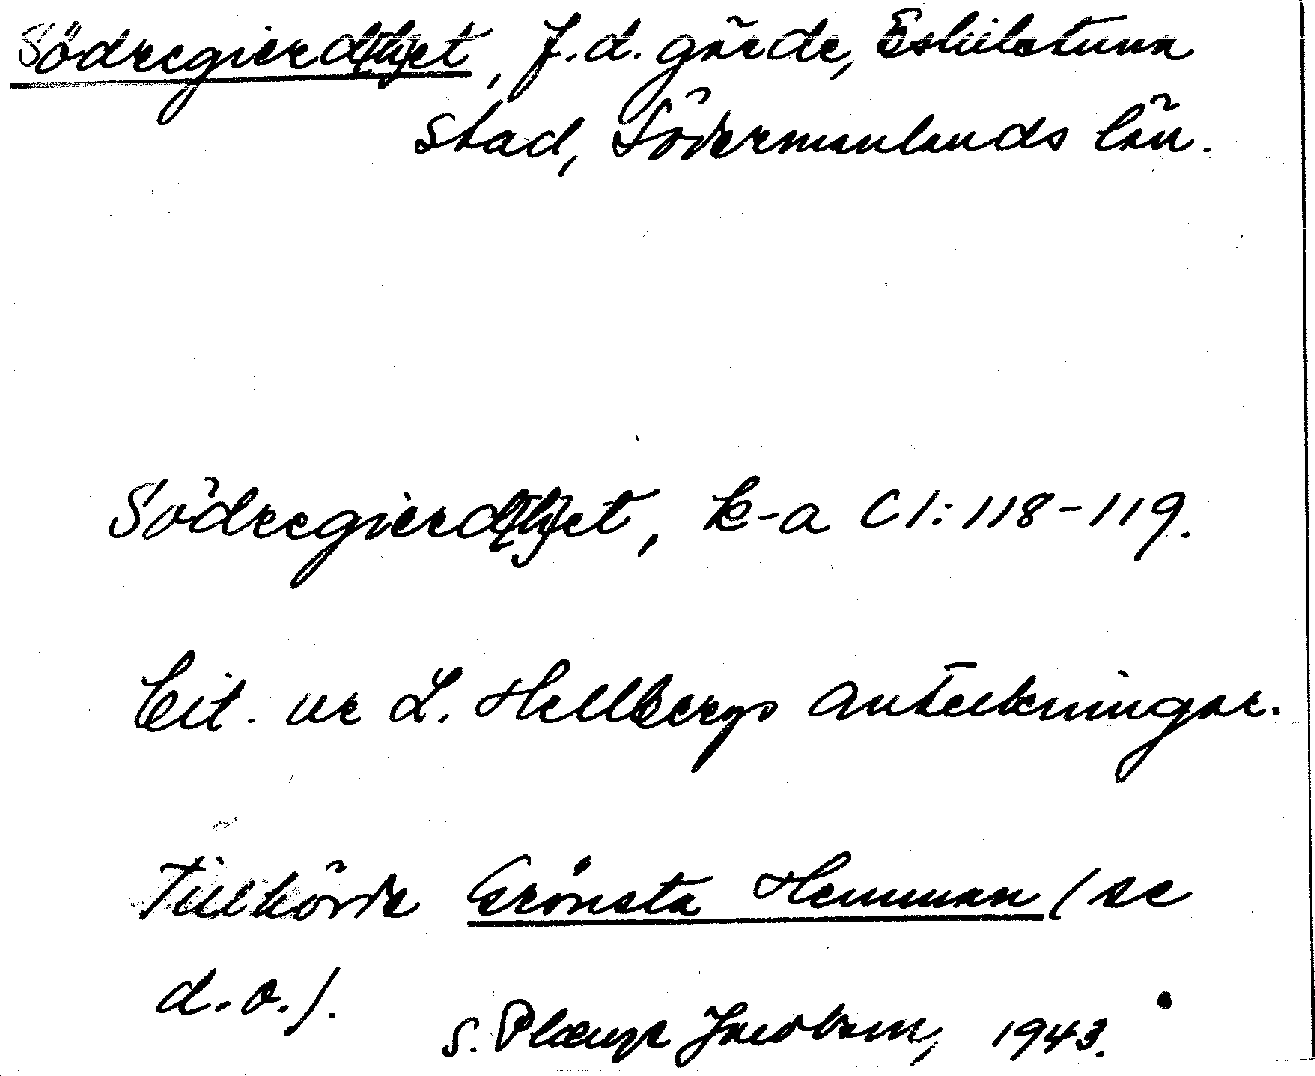 Södregierd(th)et, f.d. gärde, Eskilstuna
stad, Södermanlands län.
Södregierd(th)et, k-a C1:118-119.
Cit. ur L. Hellbergs anteckningar.
Tillhörde Grönsta Hemman (se
d.o.).
S. Jacobson, 1943.